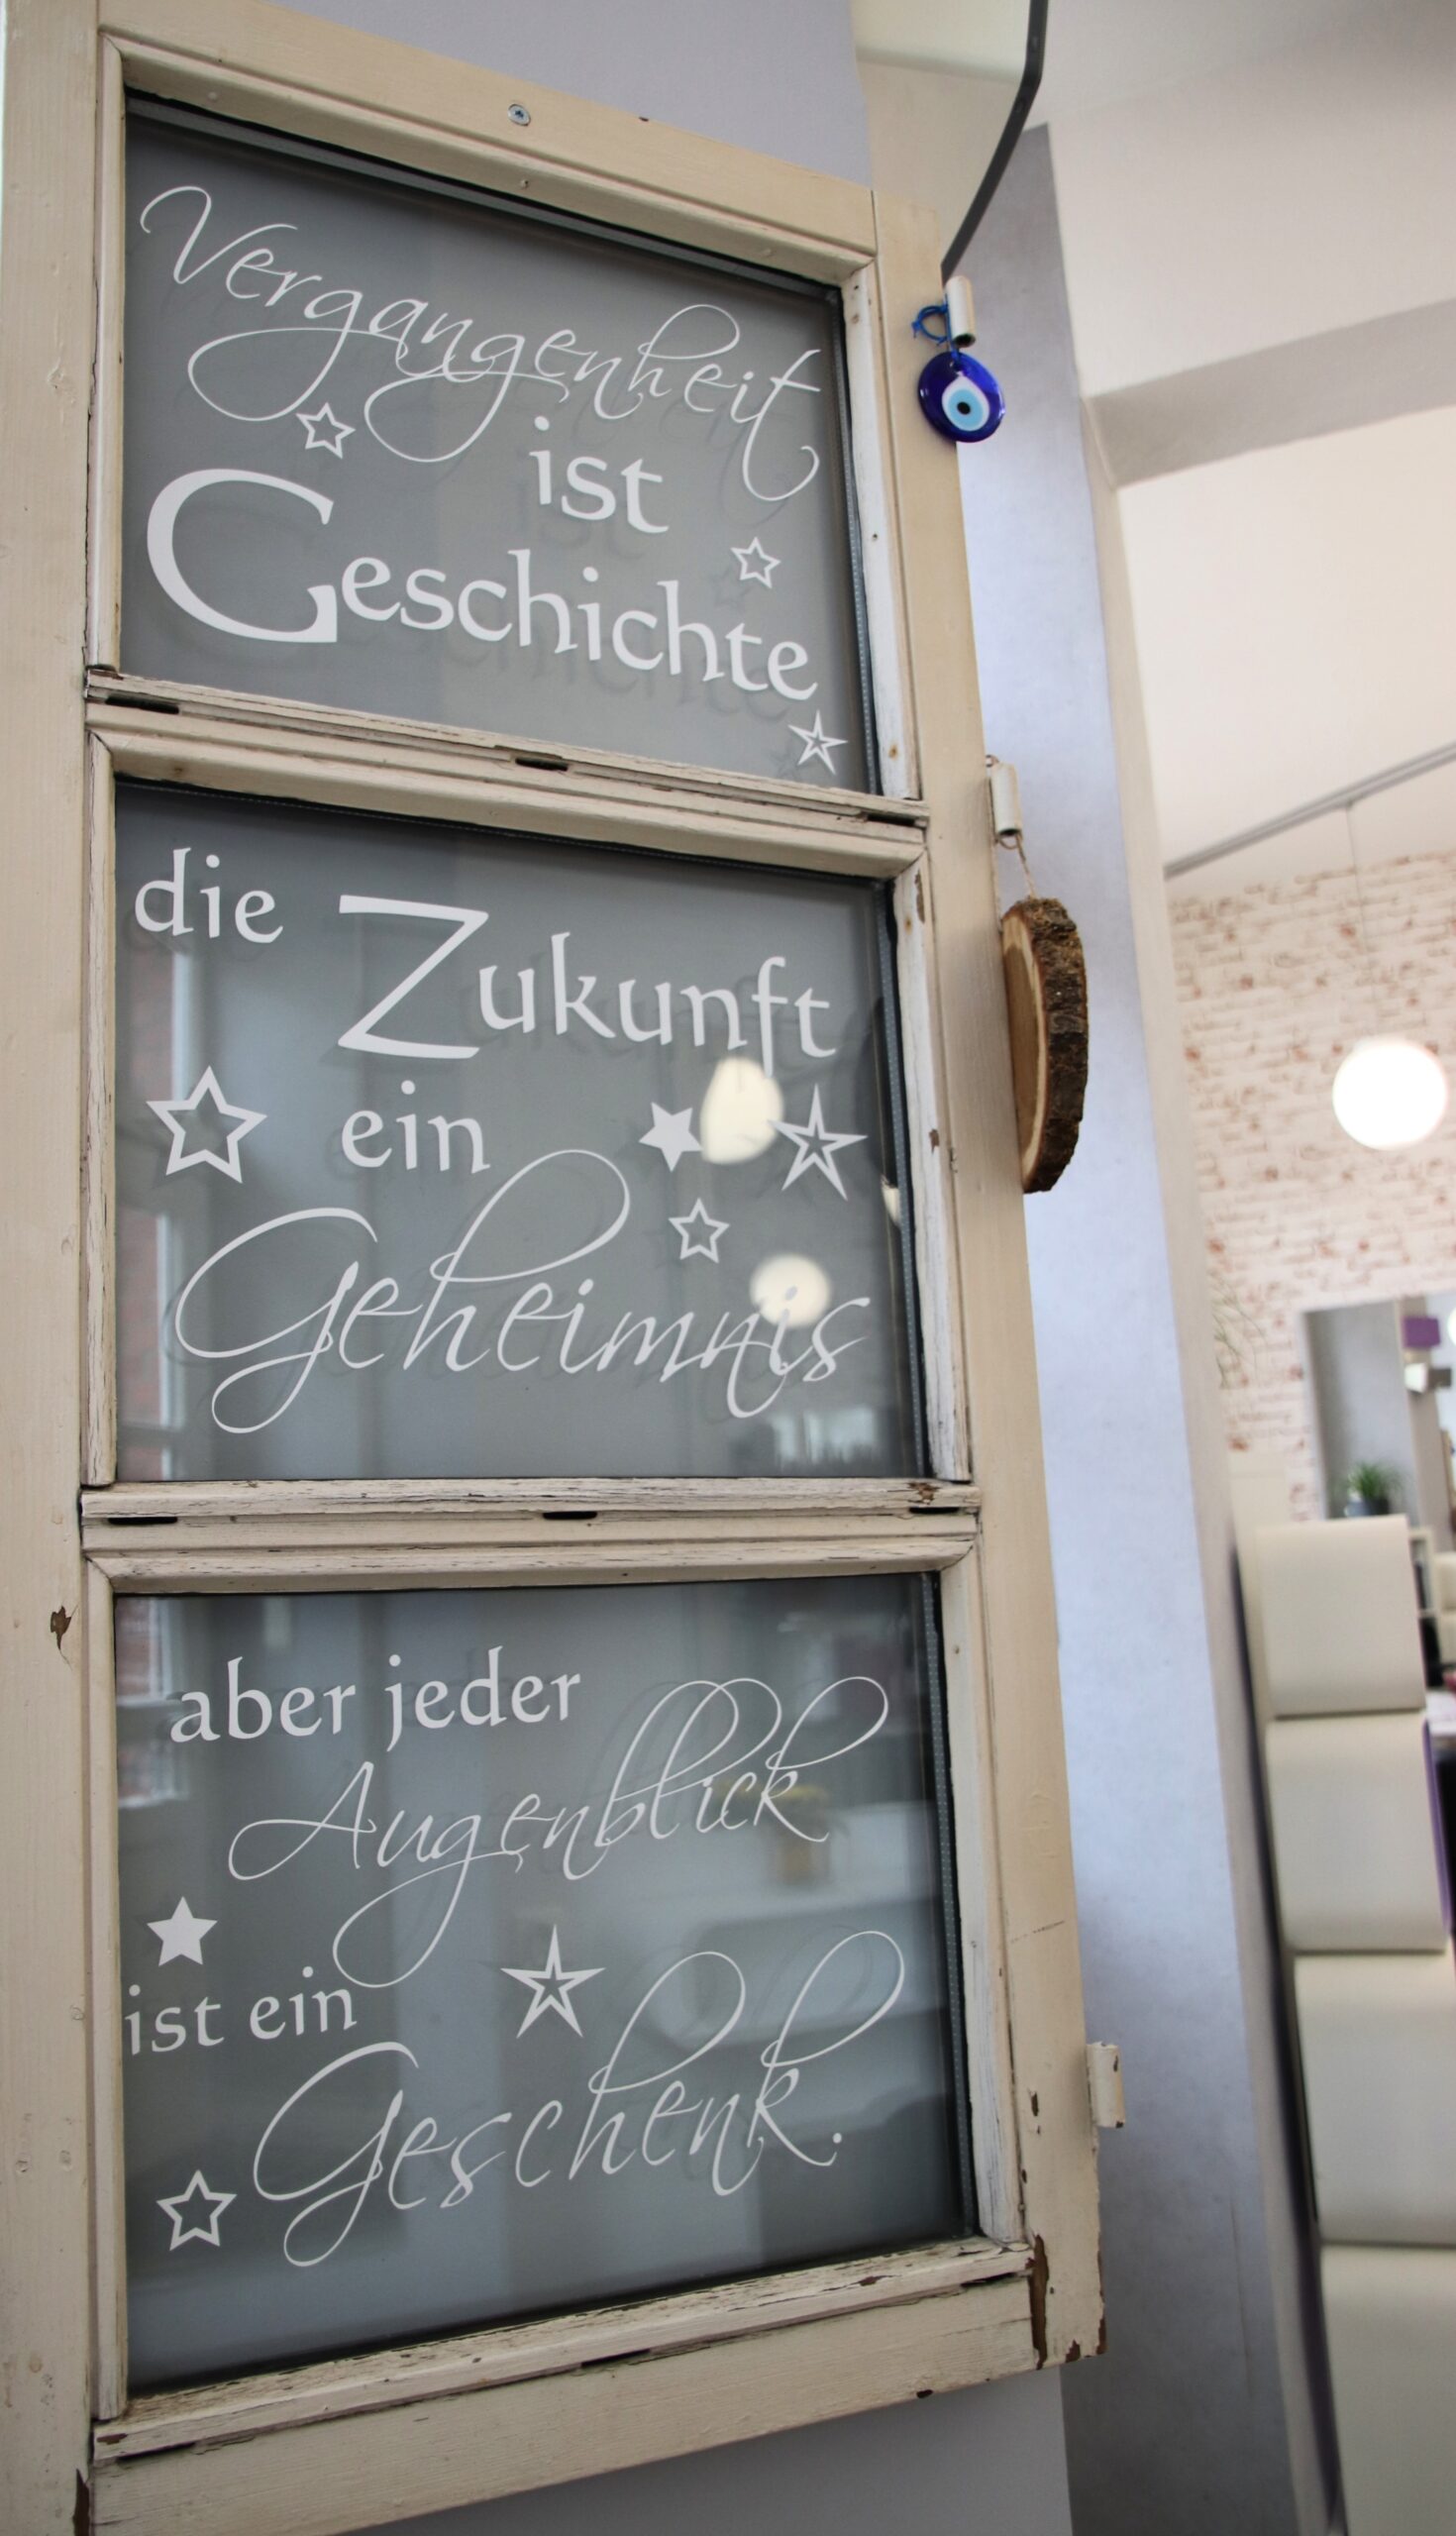 Vergangenheit
ist
Geschichte
die Zukunft
ein
Geheimnis
aber jeder
Augenblick
ist ein
Geschenk.